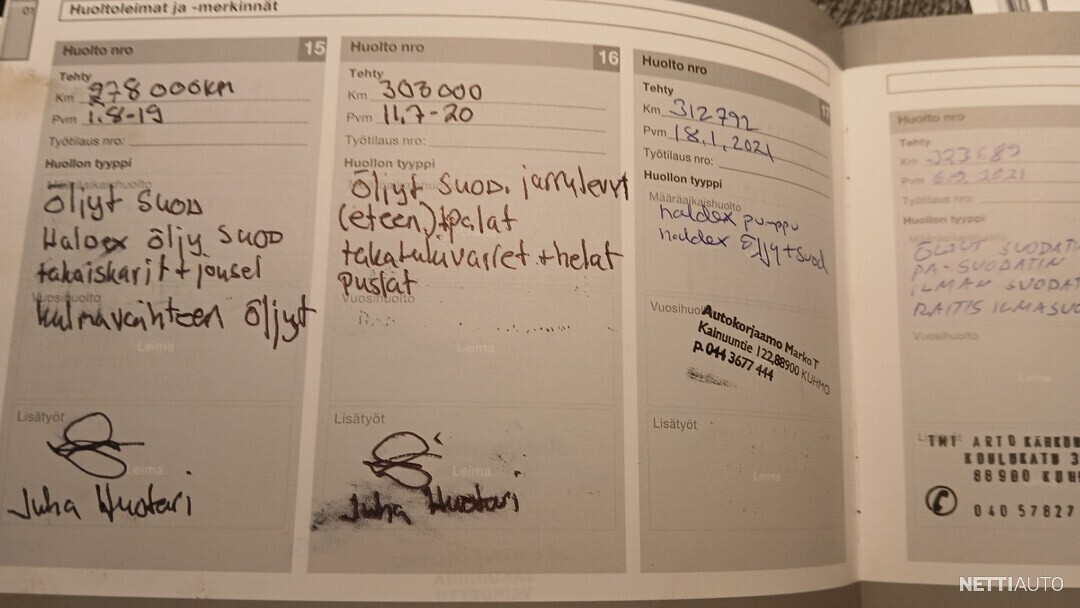 Huoltoleimat ja -merkinnät
Huolto nro 15
Tehty
Km 278 000km
Pvm 1.8-19
Työtilaus nro:
Huollon tyyppi
Määräaikaishuolto
Öljyt SUOD
Haldex öljy SUOD
takaiskarit + jouset
Vuosihuolto
kulmavaihteen öljyt
Leima
Lisätyöt
Leima
Juha Huotari
Huolto nro 16
Tehty
Km 303000
Pvm 11.7-20
Työtilaus nro:
Huollon tyyppi
Öljyt SUOD. jarrulevyt
(eteen)+palat
takatukivarret + helat
puslat
Vuosihuolto
Leima
Lisätyöt
Leima
Juha Huotari
Huolto nro
17
Tehty
Km 312792
Pvm 18.1.2021
Työtilaus nro:
Huollon tyyppi
Määräaikaishuolto
haldex pumppu
haldex öljy+suod
Vuosihuolto
Autokorjaamo Marko T
Kainuuntie 122,88900 KUHMO
p. 044 3677 444
Lisätyöt
Leima
Huolto nro
Tehty
Km 323589
Pvm 2021
Työtilaus nro:
Huollon tyyppi
ÖLJYT SUODATIN
PA-SUODATIN
ILMAN SUODAT
RAITIS ILMASUO
Vuosihuolto
Leima
TMI ARTO KÄHKÖN
KOULUKATU 3
88900 KUH
040 57827
NETTIAUTO